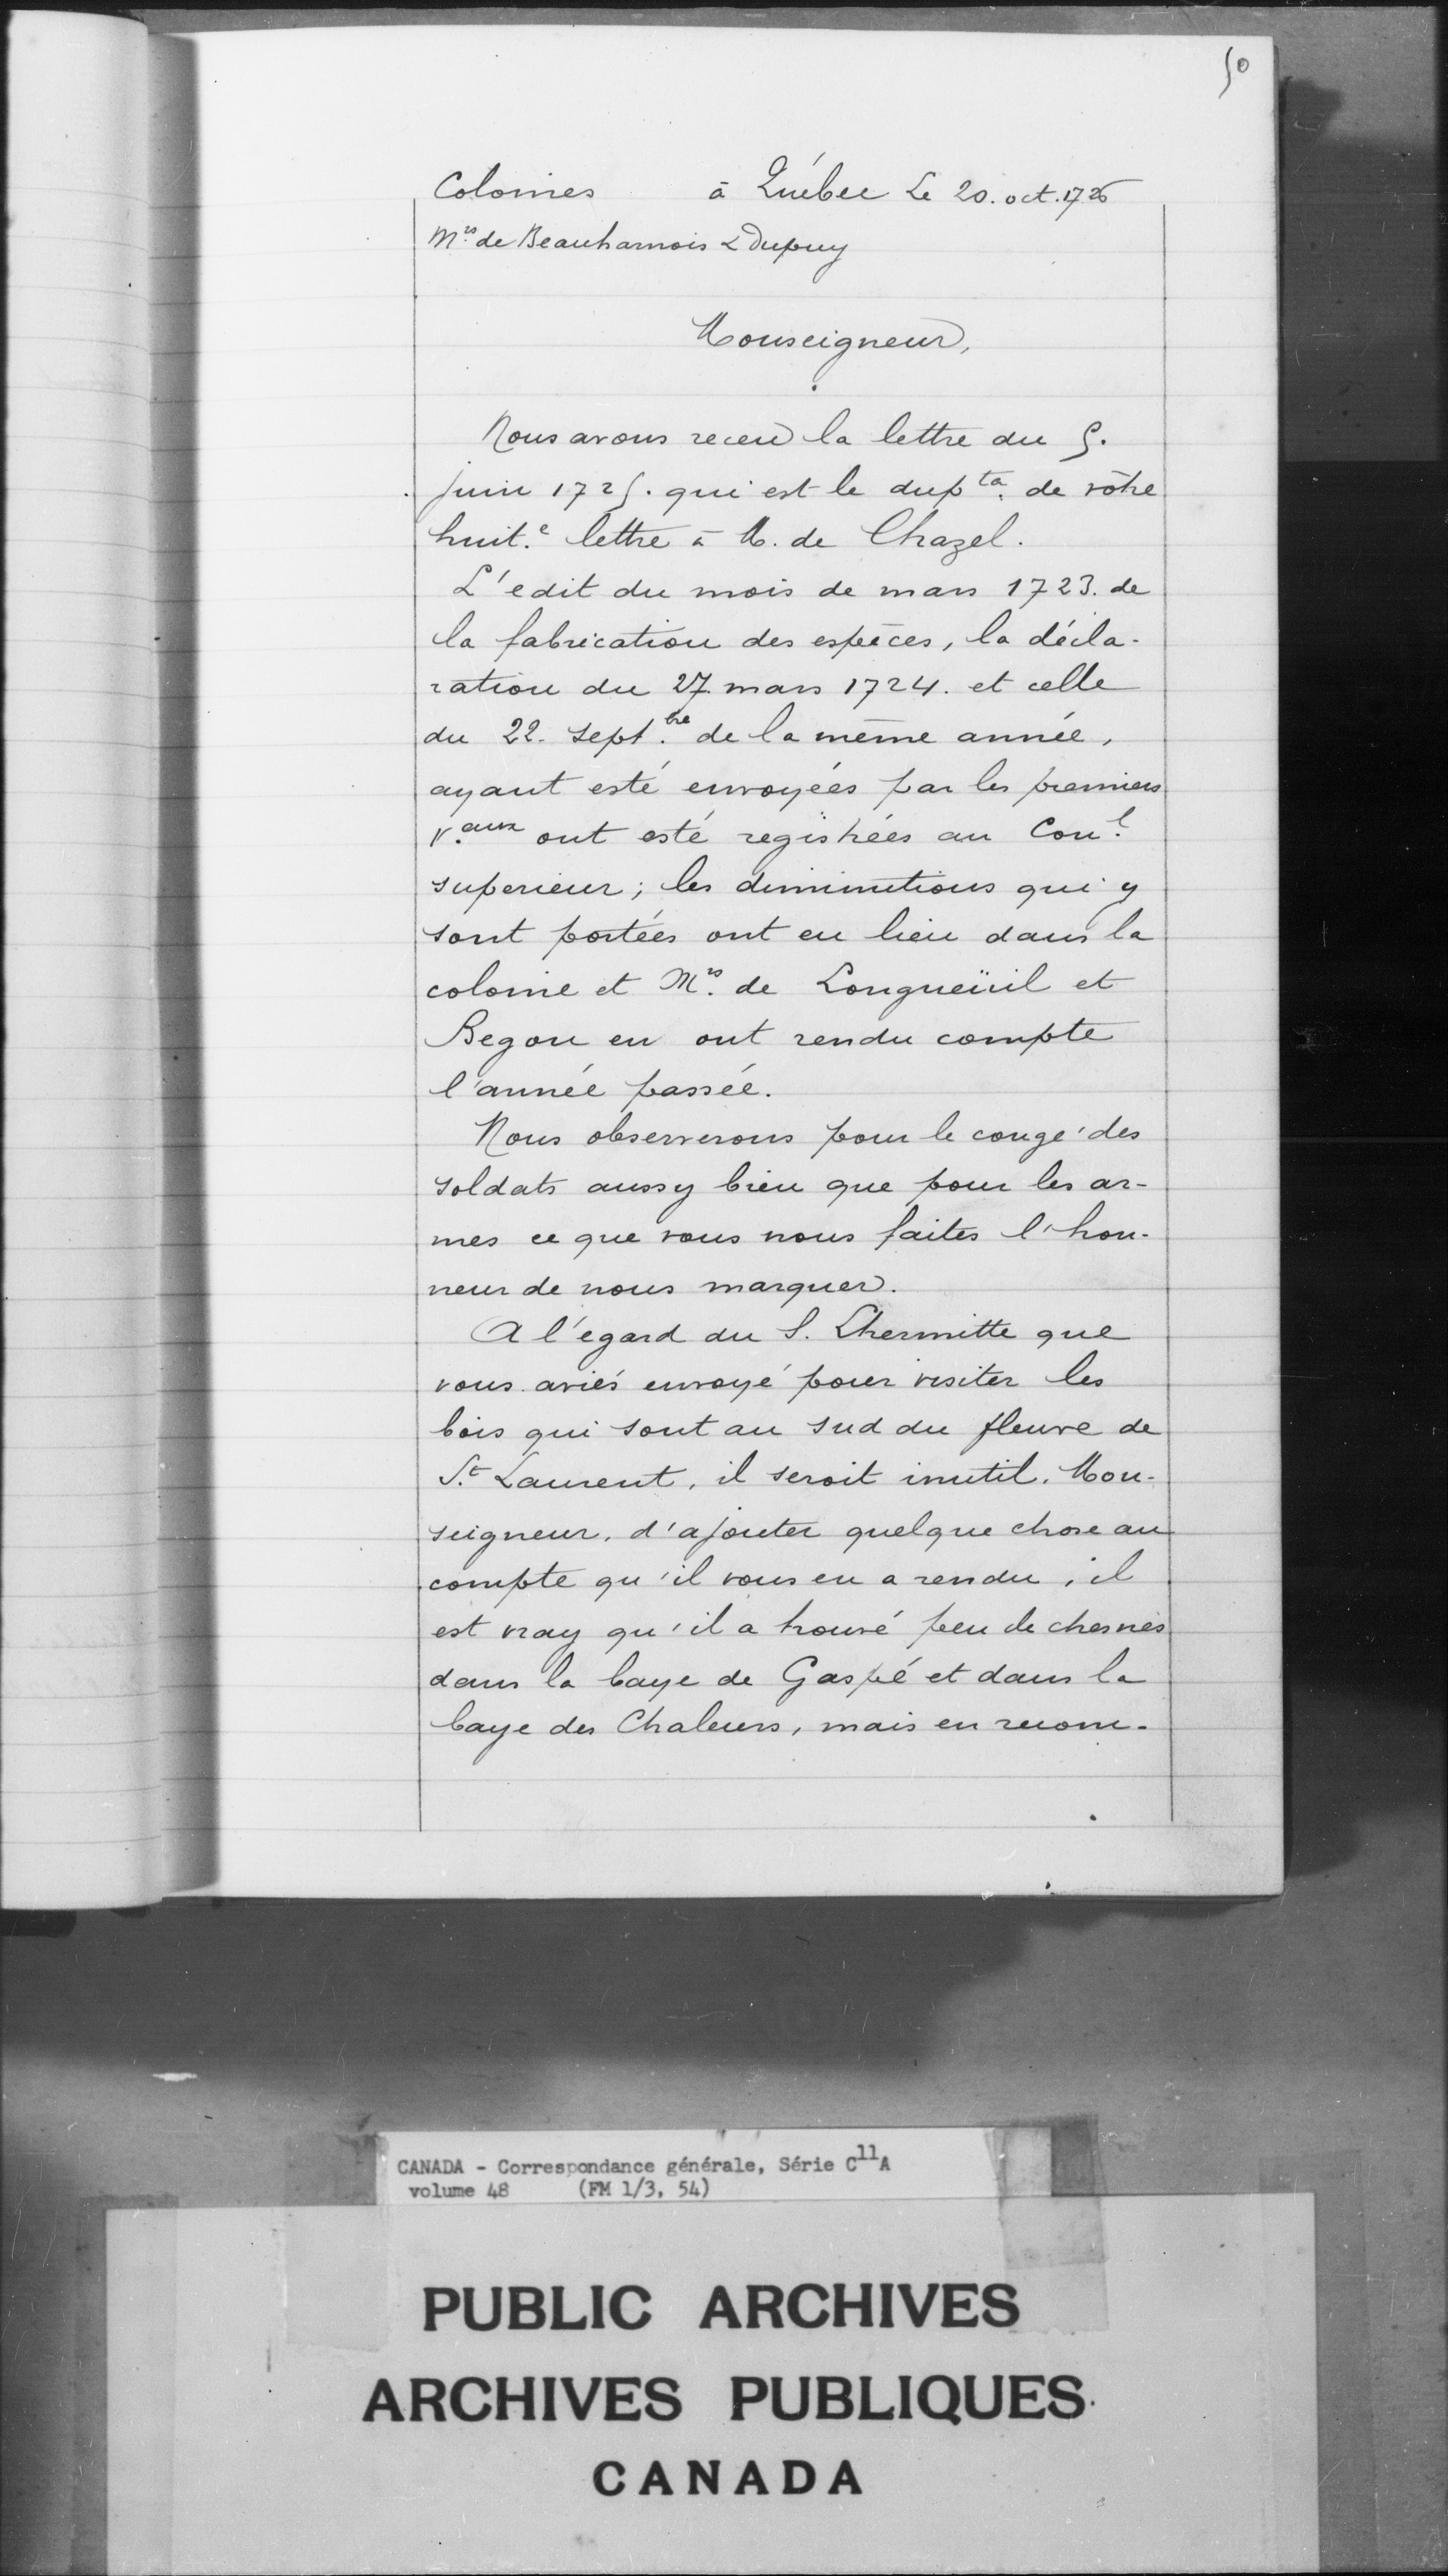 50
Colonies à Québec Le 20. oct. 1726
Mrs. de Beauharnois & Dupuy
Monseigneur,
Nous avons receu la lettre du 5.
juin 1725. qui est le dupta. de vôtre
huit.e lettre à M. de Chazel.
L'edit du mois de mars 1723. de
la fabrication des espèces, la décla-
ration du 27. mars 1724. et celle
du 22. Sept.bre de la même année,
ayant esté envoyées par les premiers
V.aux ont esté registrées au Con.l
superieur; les diminutions qui y
sont portées ont eu lieu dans la
colonie et Mrs. de Longueüil et
Begon en ont rendu compte
l'année passée.
Nous observerons pour le congé des
soldats aussy bien que pour les ar-
mes ce que vous nous faites l'hon-
neur de nous marquer.
A l'egard du S. Lhermitte que
vous aviés envoyé pour visiter les
bois qui sont au sud du fleuve de
St. Laurent, il seroit inutil, Mon-
seigneur, d'ajouter quelque chose au
compte qu'il vous en a rendu, il
est vray qu'il a trouvé peu de chesnes
dans la baye de Gaspé et dans la
baye des Chaleurs, mais en recom-
CANADA - Correspondance générale, Série C11A
volume 48 (FM 1/3, 54)
PUBLIC ARCHIVES
ARCHIVES PUBLIQUES
CANADA